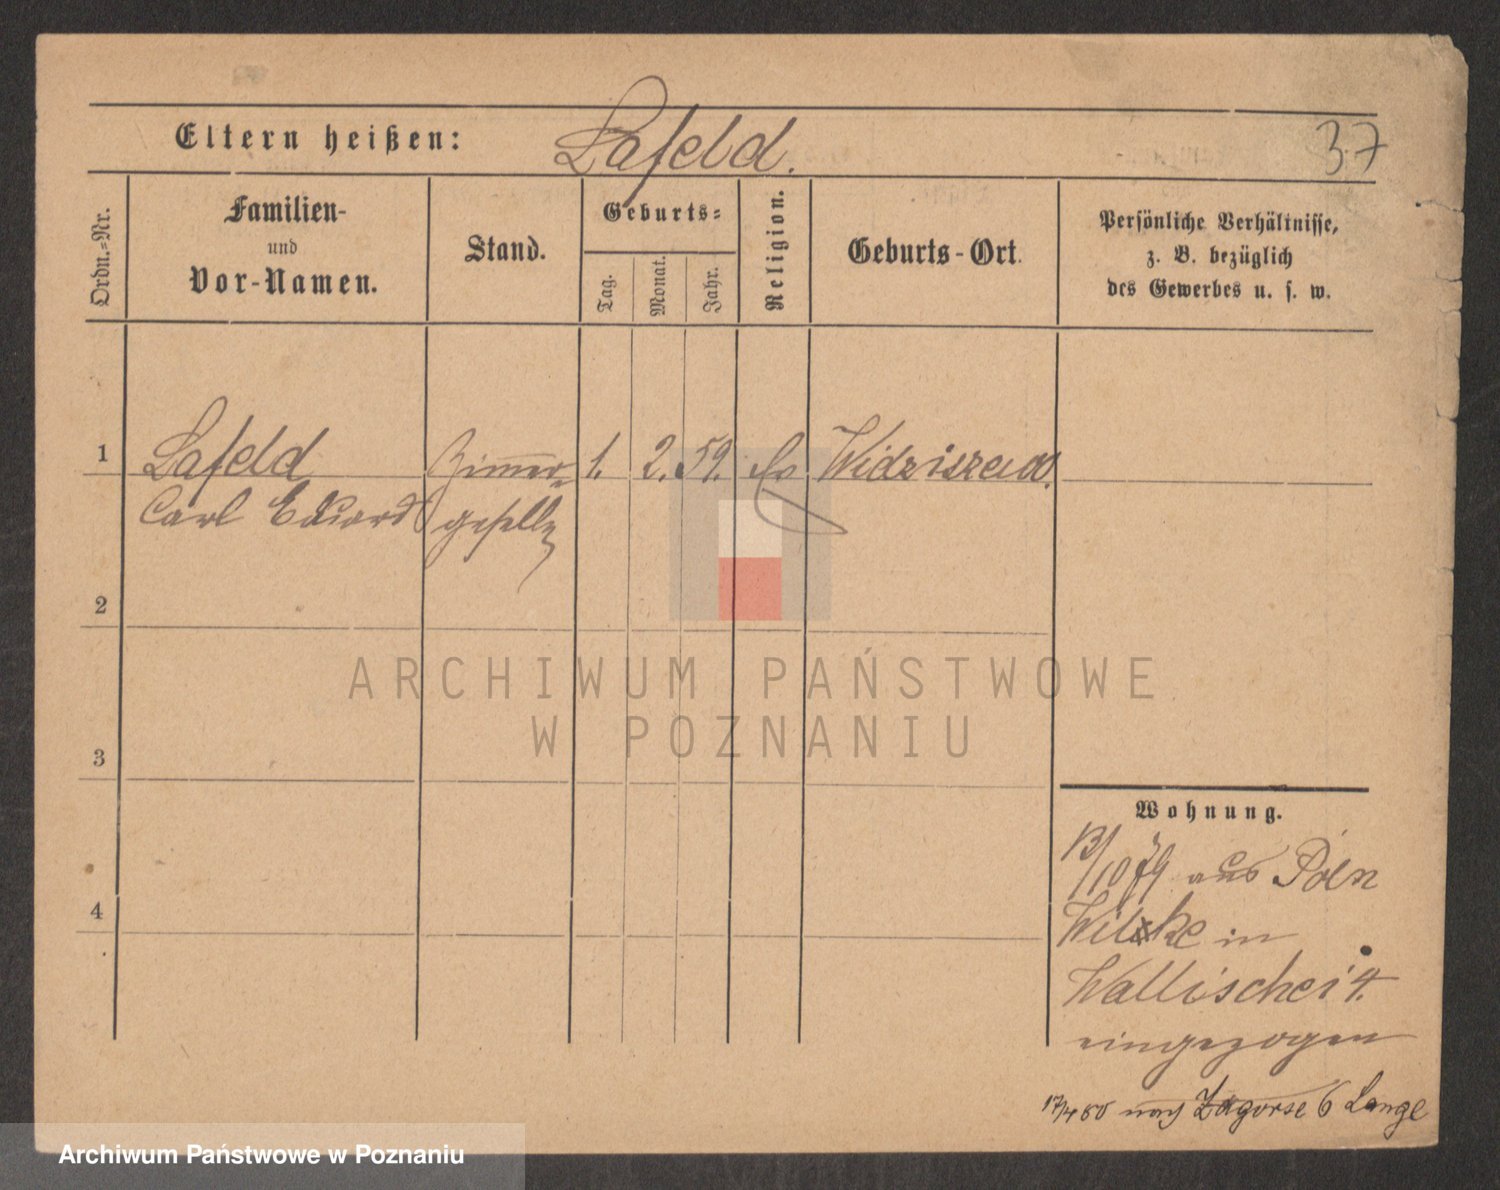 Eltern heißen: Lafeld.
37
Ordn.=Nr.
Familien-
und
Vor-Namen.
Stand.
Geburts=
Tag.
Monat.
Jahr.
Religion.
Geburts-Ort.
Persönliche Verhältnisse,
z. B. bezüglich
des Gewerbes u. s. w.
1 Lafeld Zimmer= 1. 2. 59. Ev Widziszewo.
Carl Eduard geselle
2
3
4
ARCHIWUM PAŃSTWOWE
W POZNANIU
Wohnung.
13/10 79 aus
in
Wallischei 4.
eingezogen
17/4 80 nach Zagorse 6 Lange
Archiwum Państwowe w Poznaniu